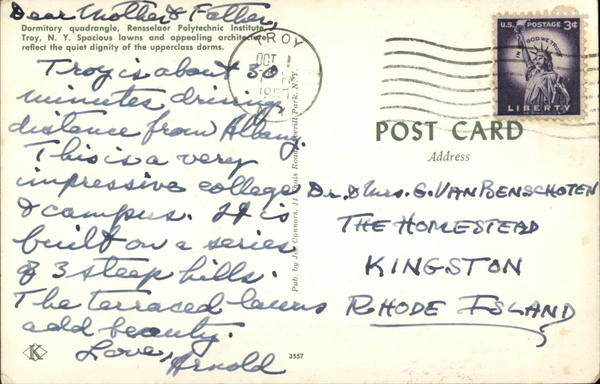 Dear Mother & Father,
Dormitory quadrangle, Rensselaer Polytechnic Institute,
Troy, N. Y. Spacious lawns and appealing architecture
reflect the quiet dignity of the upperclass dorms.
Troy is about 30
minutes driving
distance from Albany.
This is a very
impressive college
& campus. It is
built on a series
of 3 steep hills.
The terraced lawns
add beauty.
Love,
Arnold
Pub. by Joe Connors, 11 Louis Road, Averill Park, N. Y.
K
3557
TROY
OCT
U.S. POSTAGE 3¢
IN GOD WE TRUST
LIBERTY
POST CARD
Address
Dr. & Mrs. G. VanBenschoten
The Homestead
Kingston
Rhode Island